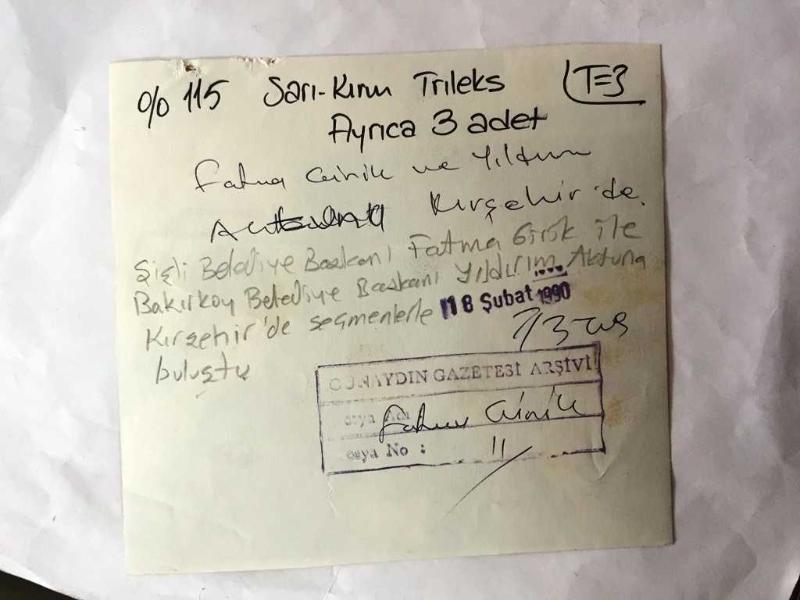 % 115 Sarı-Kırmı Trileks T=3
Ayrıca 3 adet
Fatma Girik ve Yıldırım
Kırşehir'de.
Şişli Belediye Başkanı Fatma Girik ile
Bakırköy Belediye Başkanı Yıldırım Aktuna
Kırşehir'de seçmenlerle 18 Şubat 1990
buluştu
GÜNAYDIN GAZETESİ ARŞİVİ
Fatma Girik
osya No : 11